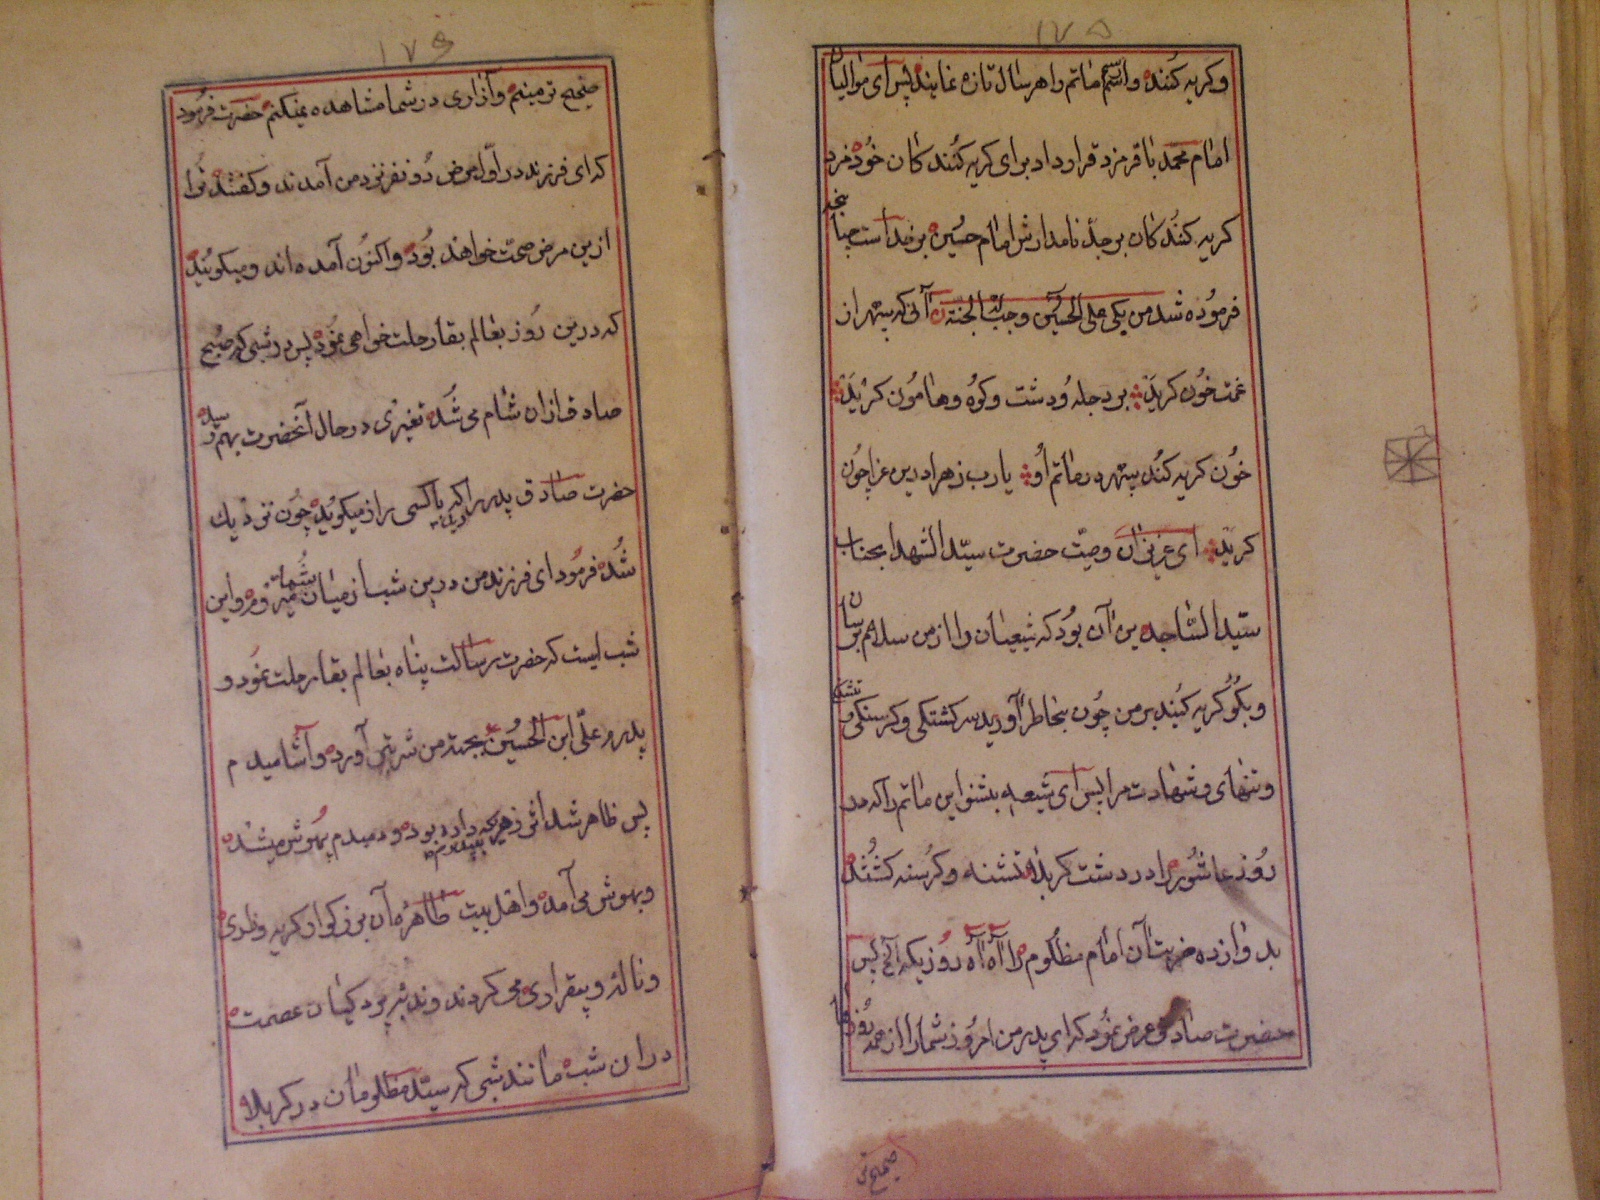 ۱۷۵
و کریه کنند و اسم ماتم را هر سال تازه نمایند پس ای موالیان
امام محمد باقر مزد قرارداد برای کریه کنندکان خود مزد
کریه کنندکان بر جد نامدارش امام حسین بر خداست چنانچه
فرموده شد من بکی علی الحسین وجبت له الجنة آنی که سپهر از
غمت خون کرید بر دجله و دشت و کوه و هامون کرید
خون کریه کند سپهر در ماتم او یا رب زهرا درین عزا چون
کرید ای عزیزان وصیت حضرت سید الشهدا بجناب
سید الساجدین آن بود که شیعیان را از من سلام برسان
و بکو کریه کنید بر من چون بخاطر آورید سرکشتکی و کرسنکی و تشنکی
و تنهای و شهادت مرا پس ای شیعه بشنو این ماتم را که در
روز عاشورا در دشت کربلا تشنه و کرسنه کشتند
بدوازده ضربت آن امام مظلوم را آه آه روزیکه الخ پس
حضرت صادق عرض نمود که ای پدر من امروز شما را از همه روزها
صحیح تر
۱۷۶
صحیح تر میبینم و آزاری در شما مشاهده نمیکنم حضرت فرمود
که ای فرزند در اول مرض دو نفر نزد من آمدند و کفتند ترا
ازین مرض صحت خواهند بود و اکنون آمده اند و میکویند
که درین روز بعالم بقا رحلت خواهی نمود پس در شبی که صبح
صادق ازان شام می شد تغیری در حال آنحضرت بهم رسید
حضرت صادق پدر را دید که با کسی راز میکوید چون نزدیک
شد فرمود ای فرزند من درین شب از میان شما میروم و این
شب ایست که حضرت رسالت پناه بعالم بقا رحلت نمود و
پدرم علی ابن الحسین بجهة من شربتی آورد و آشامیدم
پس ظاهر شد اثر زهریکه داده بودند و دمبدم بیهوش میشد
و بهوش می آمد و اهل بیت طاهره آن بزرکوار کریه و زاری
و ناله و بیقراری می کردند و نیز پردکیان عصمت
دران شب مانند شبی که سید مظلومان در کربلا